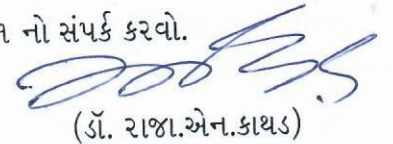 ૧ નો સંપર્ક કરવો.
(ડૉ. રાજા.એન.કાથડ)